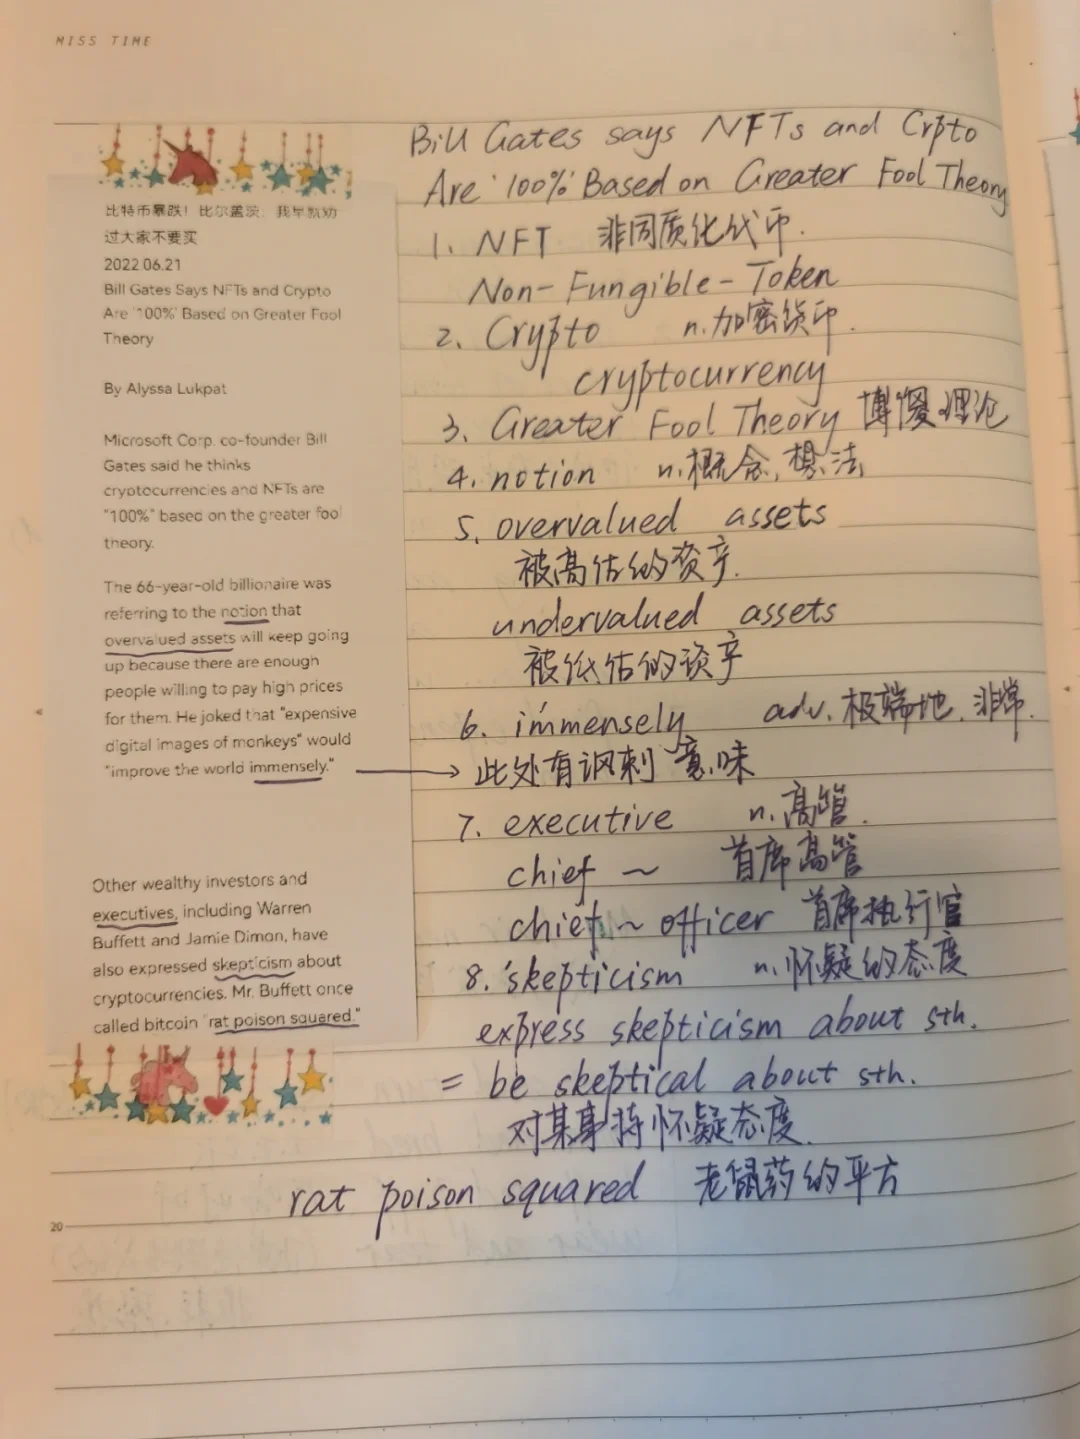 MISS TIME
比特币暴跌！比尔盖茨：我早就劝
过大家不要买
2022.06.21
Bill Gates Says NFTs and Crypto
Are '100%' Based on Greater Fool
Theory
By Alyssa Lukpat
Microsoft Corp. co-founder Bill
Gates said he thinks
cryptocurrencies and NFTs are
"100%" based on the greater fool
theory.
The 66-year-old billionaire was
referring to the notion that
overvalued assets will keep going
up because there are enough
people willing to pay high prices
for them. He joked that "expensive
digital images of monkeys" would
"improve the world immensely."
Other wealthy investors and
executives, including Warren
Buffett and Jamie Dimon, have
also expressed skepticism about
cryptocurrencies. Mr. Buffett once
called bitcoin "rat poison squared."
Bill Gates says NFTs and Crpto
Are '100%' Based on Greater Fool Theory
1. NFT 非同质化代币.
Non-Fungible-Token
2. Crypto n.加密货币.
cryptocurrency
3. Greater Fool Theory 博傻理论
4. notion n.概念,想法
5. overvalued assets
被高估的资产.
undervalued assets
被低估的资产
6. immensely adv. 极端地,非常.
此处有讽刺意味
7. executive n.高管.
chief ~ 首席高管
chief ~ officer 首席执行官
8. 'skepticism n.怀疑的态度
express skepticism about sth.
= be skeptical about sth.
对某事持怀疑态度.
rat poison squared 老鼠药的平方
20